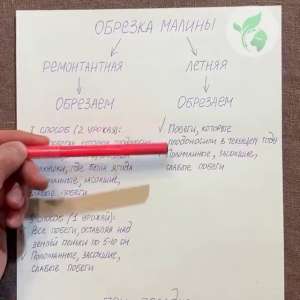 ОБРЕЗКА МАЛИНЫ
РЕМОНТАНТНАЯ
ЛЕТНЯЯ
ОБРЕЗАЕМ
ОБРЕЗАЕМ
СПОСОБ (2 УРОЖАЯ):
где были ягоды
слабые побеги
СПОСОБ (1 УРОЖАЙ):
Все побеги, оставляя над
землей пеньки по 5-10 см
Поломанные, засохшие,
слабые побеги
Побеги, которые
плодоносили в текущем году
Поломанные, засохшие,
слабые побеги